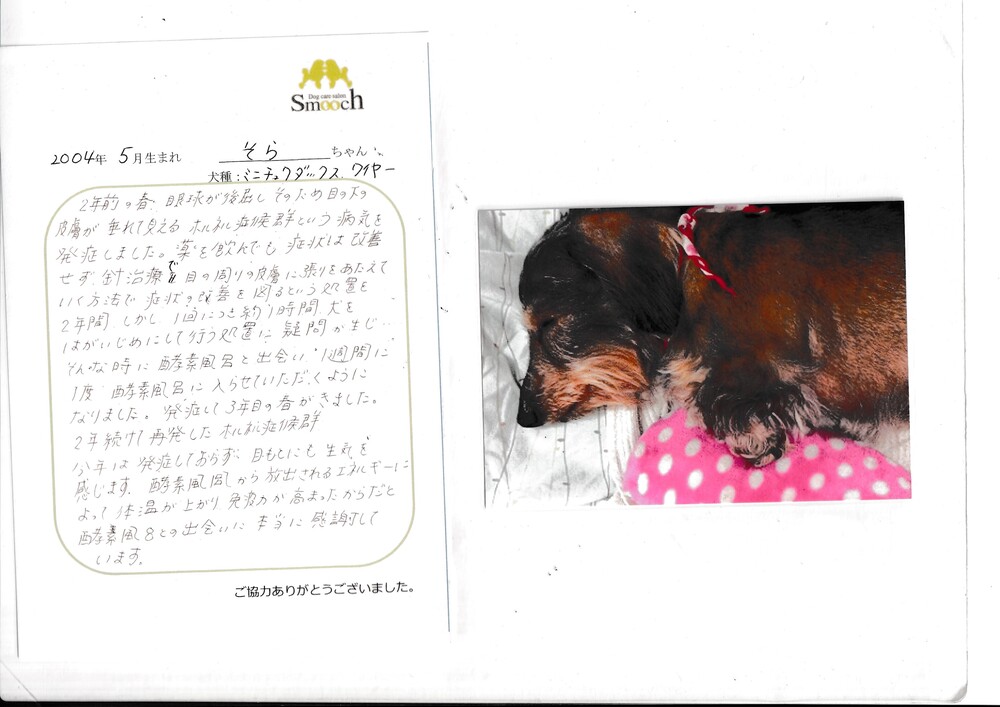 Dog care salon
Smooch
2004年 5月生まれ そら ちゃん
犬種：ミニチュアダックス ワイヤー
2年前の春、眼球が後屈し そのため目の下の
皮膚が垂れて見える ホルネル症候群という病気を
発症しました。薬を飲んでも 症状は改善
せず 針治療で目の周りの皮膚に張りをあたえて
いく方法で 症状の改善を図るという処置を
2年間 しかし 1回につき約1時間 犬を
はがいじめにして行う処置に 疑問が生じ…
そんな時に 酵素風呂と出会い 1週間に
1度 酵素風呂に入らせていただくように
なりました。発症して3年目の春がきました。
2年続けて再発したホルネル症候群
今年は 発症しておらず、目もとにも生気を
感じます。酵素風呂から放出されるエネルギーに
よって体温が上がり 免疫力が高まったからだと
酵素風呂との出会いに 本当に感謝して
います。
ご協力ありがとうございました。